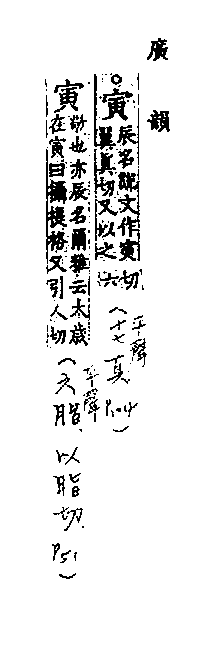 廣韻
○寅辰名說文作寅翼真切又以之切六
(平聲十七真 P104)
寅敬也亦辰名爾雅云太歲在寅曰攝提格又引人切
(平聲六脂、以脂切 P51)